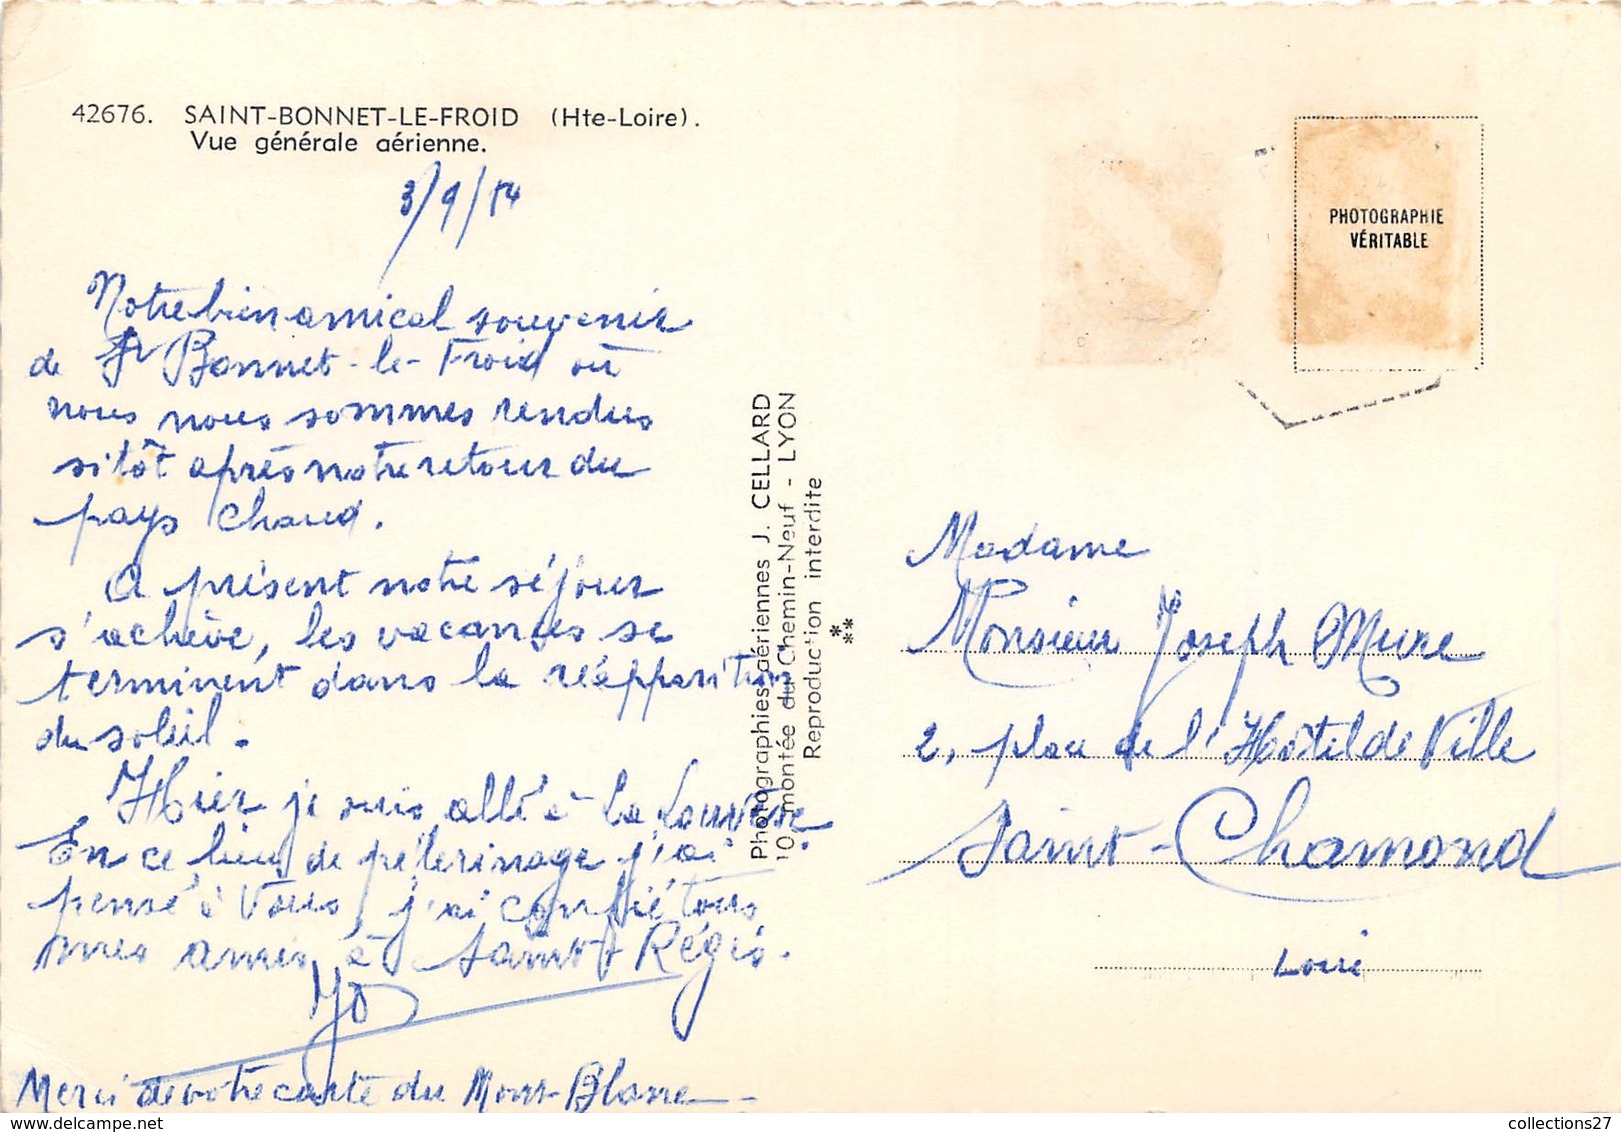 42676. SAINT-BONNET-LE-FROID (Hte-Loire).
Vue générale aérienne.
3/9/54
Notre bien amical souvenir
de St Bonnet-le-Froid où
nous nous sommes rendus
sitôt après notre retour du
pays chaud.
A présent notre séjour
s'achève, les vacances se
terminent dans la réapparition
du soleil.
Hier je suis allé à la Louvesc.
En ce lieu de pélerinage j'ai
pensé à Vous, j'ai confié tous
mes amis à Saint Régis.
Jo
Merci de votre carte du Mont-Blanc
Photographies aériennes J. CELLARD
10, montée du Chemin-Neuf - LYON
Reproduction interdite
***
PHOTOGRAPHIE
VÉRITABLE
Madame
Monsieur Joseph Mure
2, place de l'Hôtel de Ville
Saint-Chamond
Loire
collections27